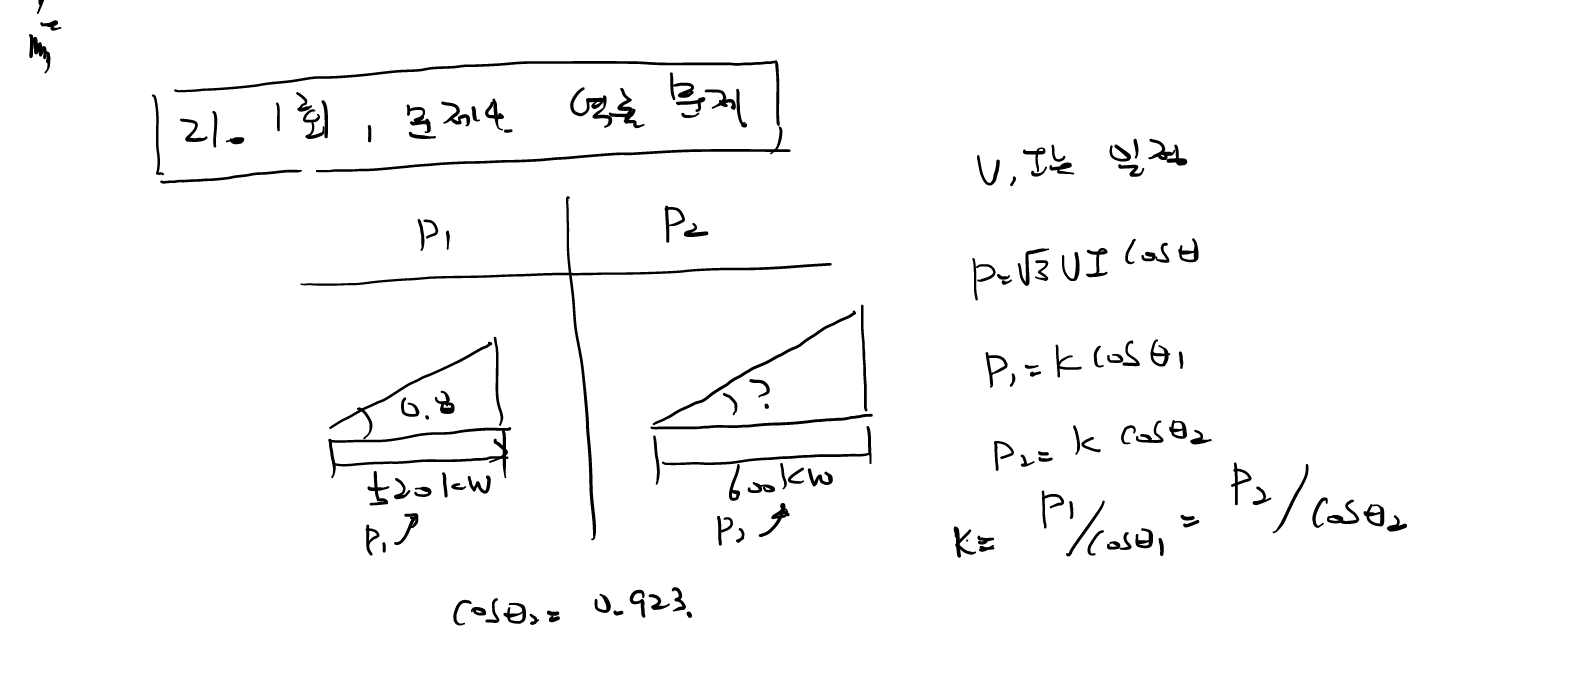 21. 1회, 문제4. 역률 문제
P₁ P₂
0.8
520kW
P₁
?
600kW
P₂
cosθ₂= 0.923.
V, I는 일정
P=√3 VI cosθ
P₁= k cosθ₁
P₂= k cosθ₂
k= P₁/cosθ₁ = P₂/cosθ₂